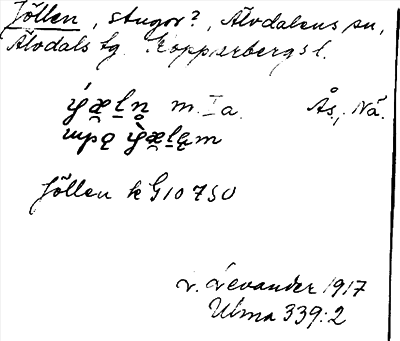 Jöllen, stugor?, Älvdalens sn,
Älvdals tg. Kopparbergs l.
m. Ia. Ås., Nä.
Jöllen k G10750
L. Levander 1917
Ulma 339:2